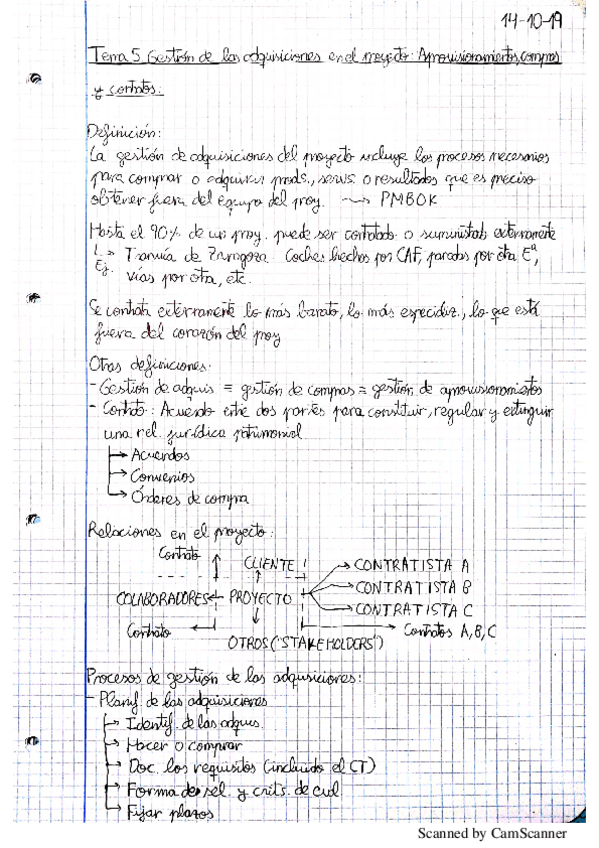 14-10-19
Tema 5 Gestión de las adquisiciones en el proyecto: Aprovisionamientos, compras
y contratos:
Definición:
La gestión de adquisiciones del proyecto incluye los procesos necesarios
para comprar o adquirir prods., servs. o resultados que es preciso
obtener fuera del equipo del proy. ~~> PMBOK
Hasta el 90% de un proy. puede ser contratado o suministrado externamente
Ej. Tranvía de Zaragoza. Coches hechos por CAF, paradas por otra Eª,
vías por otra, etc.
Se contrata externamente lo más barato, lo más especializ., lo que está
fuera del corazón del proy
Otras definiciones:
- Gestión de adquis = gestión de compras = gestión de aprovisionamientos
- Contrato: Acuerdo entre dos partes para constituir, regular y extinguir
una rel. jurídica patrimonial
→ Acuerdos
→ Convenios
→ Órdenes de compra
Relaciones en el proyecto:
Contrato CLIENTE → CONTRATISTA A
COLABORADORES ← PROYECTO → CONTRATISTA B
→ CONTRATISTA C
Contrato ← → Contratos A, B, C
OTROS ("STAKEHOLDERS")
Procesos de gestión de las adquisiciones:
- Planif. de las adquisiciones
→ Identif. de las adquis.
→ Hacer o comprar
→ Doc. los requisitos (incluido el CT)
→ Forma de sel. y crits. de
→ Fijar plazos
Scanned by CamScanner